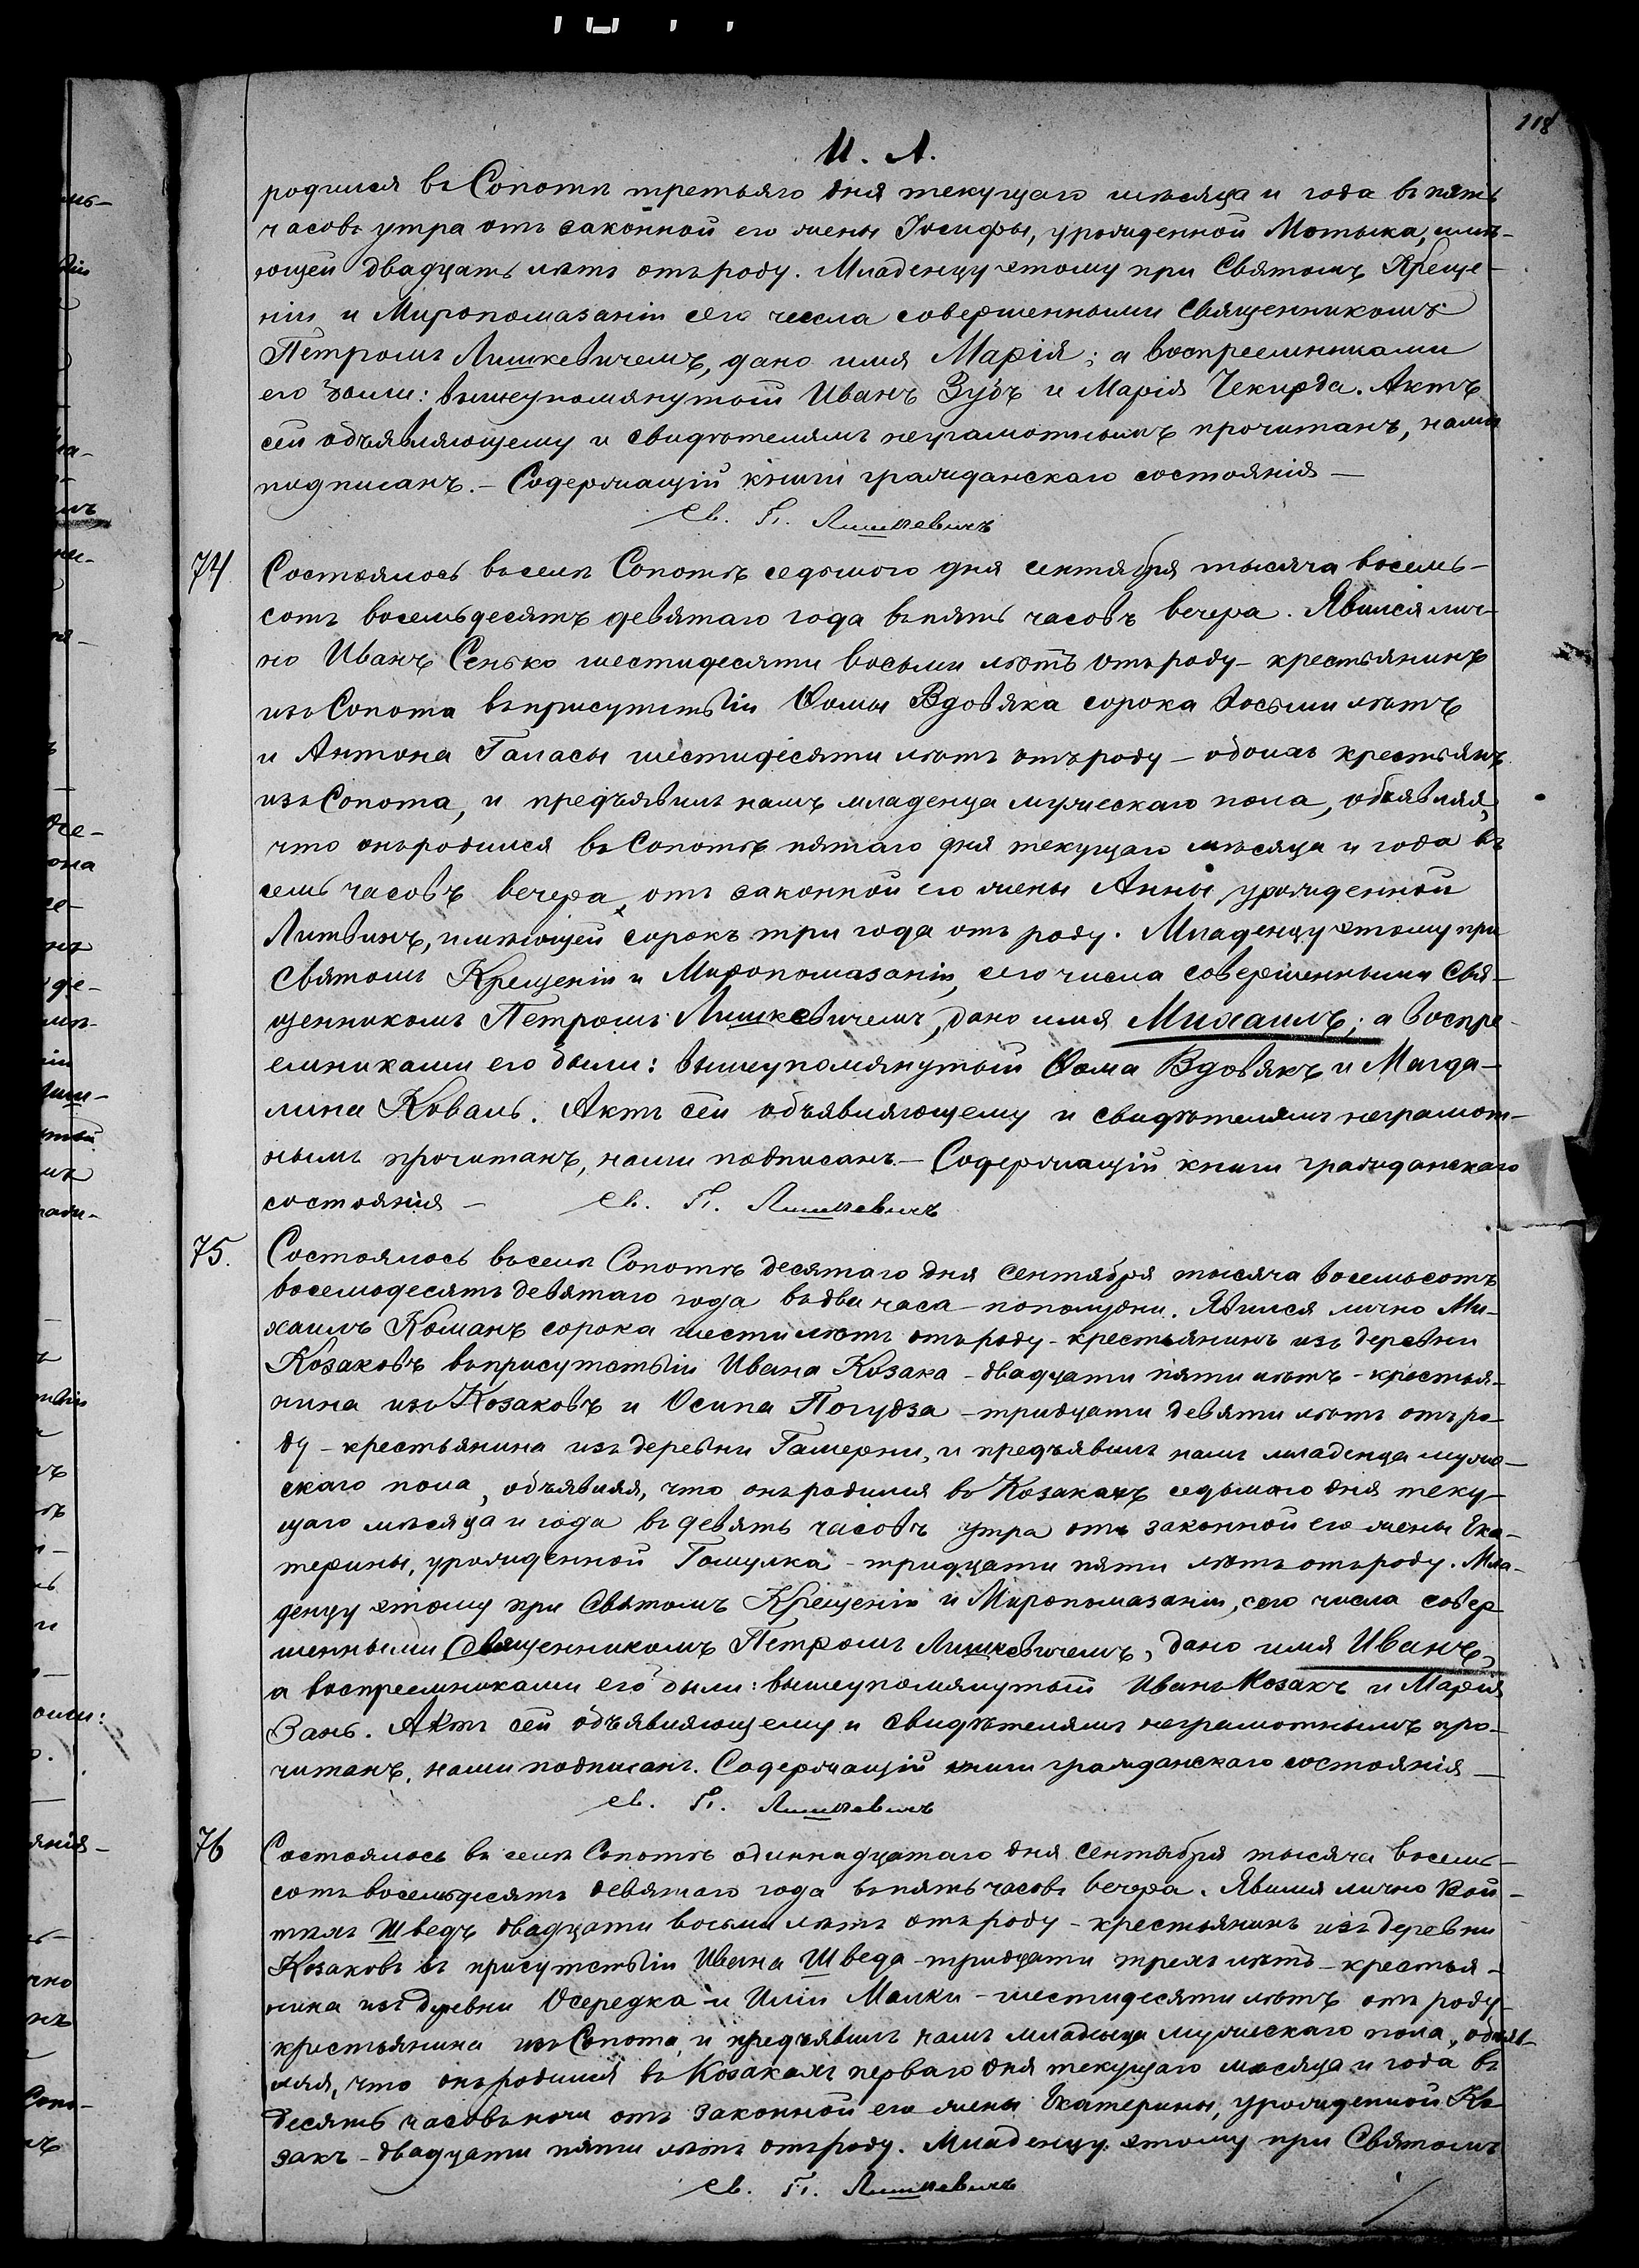 118
И. Л.
родился въ Сопотѣ третьяго дня текущаго мѣсяца и года въ пять
часовъ утра отъ законной его жены Іосифы, урожденной Мотыка, имѣ-
ющей двадцать лѣтъ отъ роду. Младенцу этому при Святомъ Креще-
ніи и Миропомазаніи сего числа совершенными Священникомъ
Петромъ Лишкевичемъ, дано имя Марія; а воспреемниками
его были: вышеупомянутый Иванъ Зубъ и Марія Чекирда. Актъ
сей объявляющему и свидѣтелямъ неграмотнымъ прочитанъ, нами
подписанъ. – Содержащій книги гражданскаго состоянія –
Св. П. Лишкевичъ
74 Состоялось въ селѣ Сопотѣ седьмого дня сентября тысяча восемь-
сотъ восемьдесятъ девятаго года въ пять часовъ вечера. Явился лич-
но Иванъ Сенько шестидесяти восьми лѣтъ отъ роду – крестьянинъ
изъ Сопота въ присутствіи Ѳомы Вдовяка сорока восьми лѣтъ
и Антона Галасы шестидесяти лѣтъ отъ роду – обоихъ крестьянъ
изъ Сопота, и предъявилъ намъ младенца мужескаго пола, объявляя,
что онъ родился въ Сопотѣ пятаго дня текущаго мѣсяца и года въ
семь часовъ вечера, отъ законной его жены Анны, урожденной
Литвинъ, имѣющей сорокъ три года отъ роду. Младенцу этому при
Святомъ Крещеніи и Миропомазаніи, сего числа совершенными Свя-
щенникомъ Петромъ Лишкевичемъ, дано имя Михаилъ; а воспре-
емниками его были: вышеупомянутый Ѳома Вдовякъ и Магда-
лина Коваль. Актъ сей объявляющему и свидѣтелямъ неграмот-
нымъ прочитанъ, нами подписанъ. – Содержащій книги гражданскаго
состоянія – Св. П. Лишкевичъ
75. Состоялось въ селѣ Сопотѣ десятаго дня Сентября тысяча восемьсотъ
восемьдесятъ девятаго года въ два часа пополудни. Явился лично Ми-
хаилъ Команъ сорока шести лѣтъ отъ роду – крестьянинъ изъ деревни
Козаковъ въ присутствіи Ивана Козака – двадцати пяти лѣтъ – крестья-
нина изъ Козаковъ и Осипа Погудза – тридцати девяти лѣтъ отъ ро-
ду – крестьянина изъ деревни Гамерни, и предъявилъ намъ младенца муже-
скаго пола, объявляя, что онъ родился въ Козакахъ седьмого дня теку-
щаго мѣсяца и года въ девять часовъ утра отъ законной его жены Ека-
терины, урожденной Гомулка – тридцати пяти лѣтъ отъ роду. Мла-
денцу этому при Святомъ Крещеніи и Миропомазаніи, сего числа совер-
шенными Священникомъ Петромъ Лишкевичемъ, дано имя Иванъ,
а воспреемниками его были: вышеупомянутый Иванъ Козакъ и Марія
Зань. Актъ сей объявляющему и свидѣтелямъ неграмотнымъ про-
читанъ, нами подписанъ. Содержащій книги гражданскаго состоянія –
Св. П. Лишкевичъ
76 Состоялось въ селѣ Сопотѣ одиннадцатаго дня Сентября тысяча восемь-
сотъ восемьдесятъ девятаго года въ пять часовъ вечера. Явился лично Вой-
тѣхъ Шведъ двадцати восьми лѣтъ отъ роду – крестьянинъ изъ деревни
Козаковъ въ присутствіи Ивана Шведа – тридцати трехъ лѣтъ – крестья-
нина изъ деревни Осередка и Иліи Малки – шестидесяти лѣтъ отъ роду
крестьянина изъ Сопота, и предъявилъ намъ младенца мужескаго пола, объяв-
ляя, что онъ родился въ Козакахъ перваго дня текущаго мѣсяца и года въ
десять часовъ ночи отъ законной его жены Екатерины, урожденной Ко-
закъ – двадцати пяти лѣтъ отъ роду. Младенцу этому при Святомъ
Св. П. Лишкевичъ